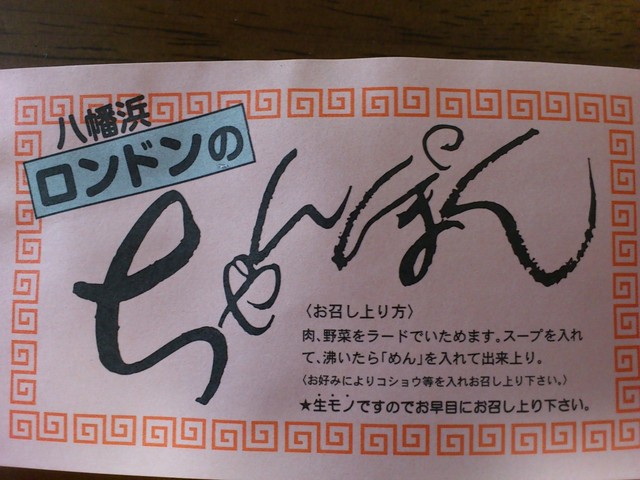 八幡浜
ロンドンの
ちゃんぽん
〈お召し上り方〉
肉、野菜をラードでいためます。スープを入れ
て、沸いたら「めん」を入れて出来上り。
〈お好みによりコショウ等を入れお召し上り下さい。〉
★生モノですのでお早目にお召し上り下さい。